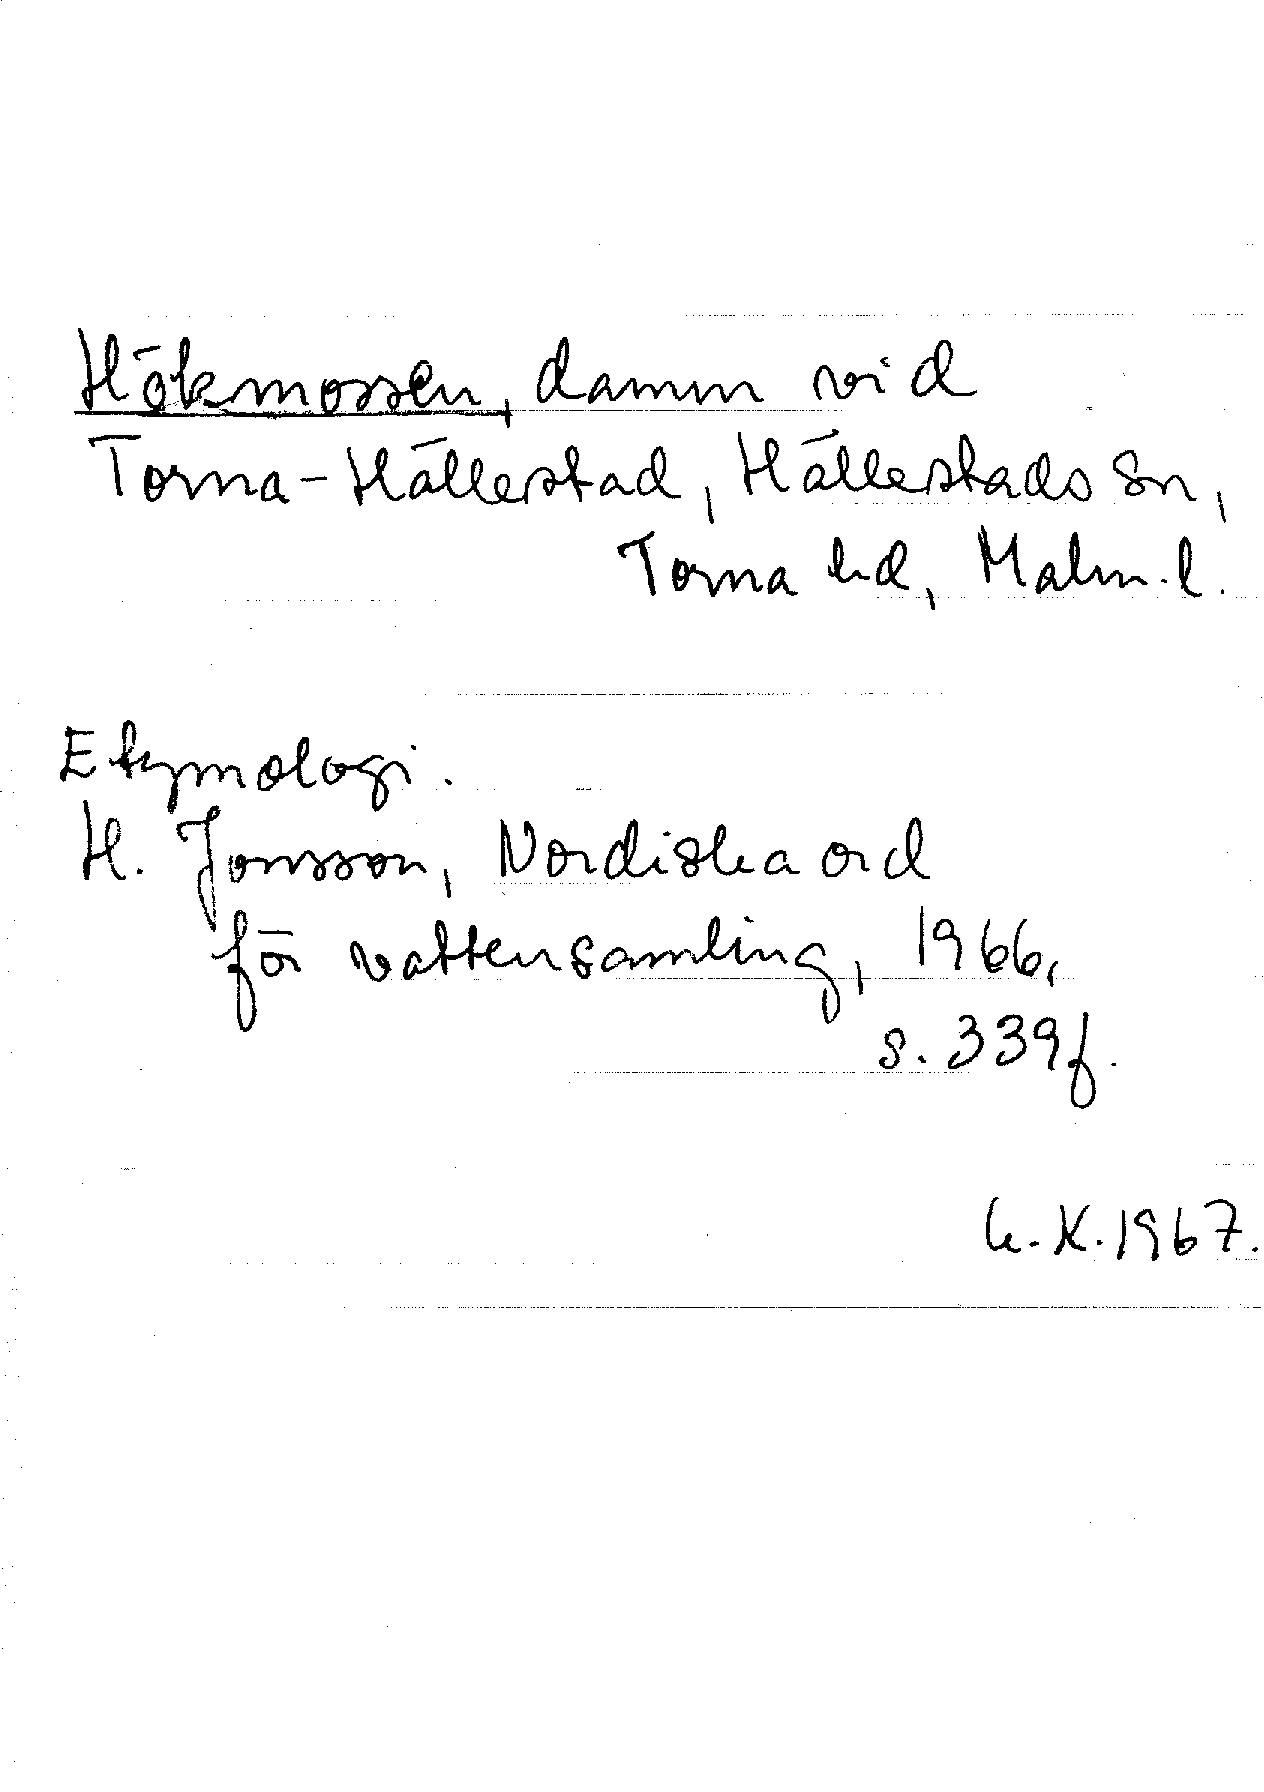 Hökmossen, damm vid
Torna-Hällestad, Hällestads sn,
Torna hd, Malm.l.
Etymologi.
H. Jonsson, Nordiska ord
för vattensamling, 1966,
s. 339f.
K. 1967.